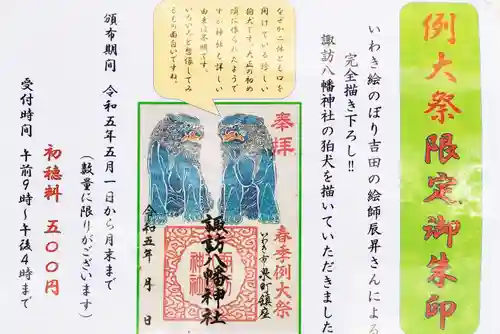 例大祭限定御朱印
いわき絵のぼり吉田の絵師辰昇さんによる
完全描き下ろし!!
諏訪八幡神社の狛犬を描いていただきました
なぜか二体とも口を
開けている珍しい
狛犬です。大正の初め
頃に作られたようで
すが神社も詳しい
由来は不明です。
いろいろと想像してみ
るのも面白いですね。
奉拝
春季例大祭
いわき市泉町鎮座
諏訪八幡神社
令和五年 月 日
頒布期間 令和五年五月1日から月末まで
(数量に限りがございます)
初穂料 五〇〇円
受付時間 午前9時~午後4時まで